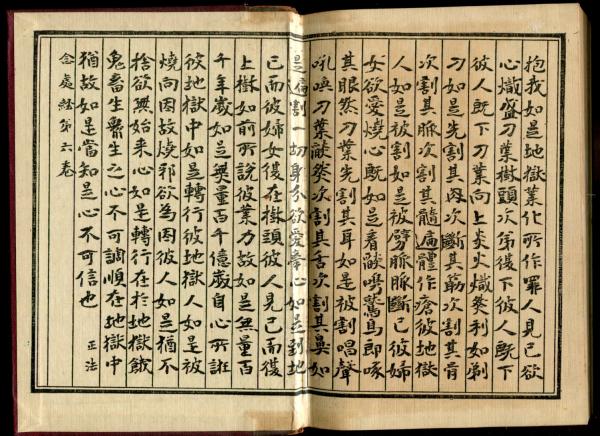 抱我如是地獄業化所作罪人見已欲
心熾盛刀葉樹頭次第復下彼人既下
彼人既下刀葉向上炎火熾然利如剃
刀如是先割其肉次斷其筋次割其骨
次割其脈次割其髓遍體作瘡彼地獄
人如是被割如是被劈脈脈斷已彼婦
女欲愛燒心既如是看鷲鳥即啄
其眼然刀葉先割其耳如是被割唱聲
吼喚刀葉炎然次割其舌次割其鼻如
是遍割一切身分欲愛牽心如是到地
已而彼婦女復在樹頭彼人見已而復
上樹如前所說彼業力故如是無量百
千年歲如是無量百千億歲自心所誑
彼地獄中如是轉行彼地獄人如是被
燒向因故燒邪欲為因彼人如是猶不
捨欲無始來心如是轉行在於地獄餓
鬼畜生衆生之心不可調順在地獄中
猶故如是當知是心不可信也 正法
念處經第六卷